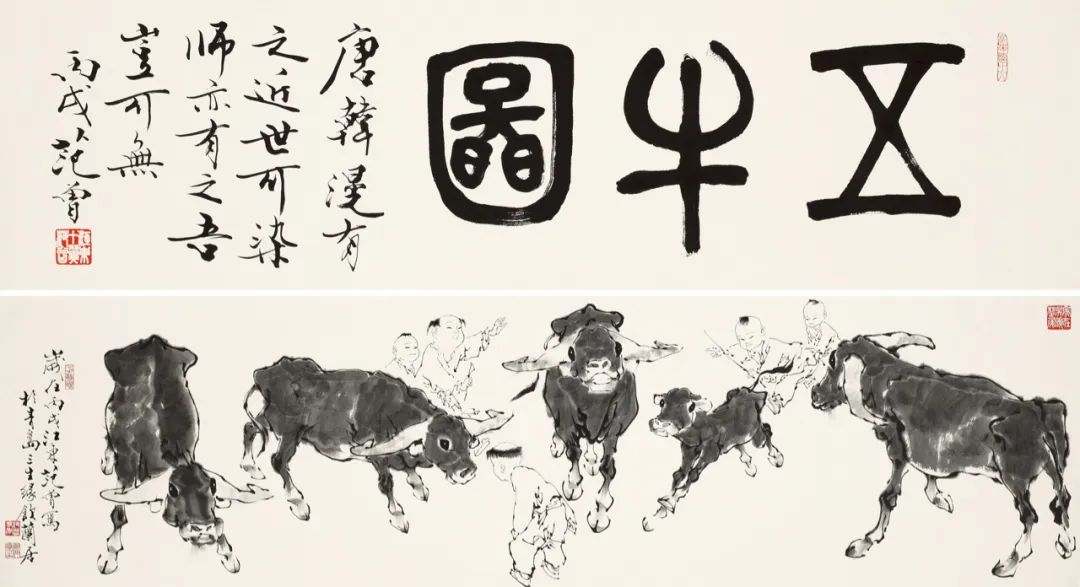 五牛圖
唐韓滉有
之近世可染
师亦有之吾
豈可無
丙戌范曾
歲在丙戌江東范曾寫
於青島三生緣蘭居